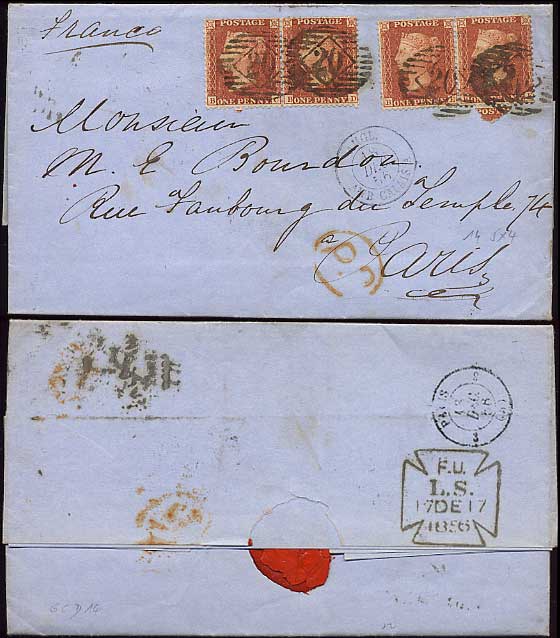 Franco
POSTAGE POSTAGE POSTAGE POSTAGE
20
ONE PENNY ONE PENNY ONE PENNY ONE PENNY
Monsieur
M. E Bourdon.
Rue Faubourg du Temple, 74
à Paris
P.D.
PARIS
F.U.
L.S.
17DE17
1856